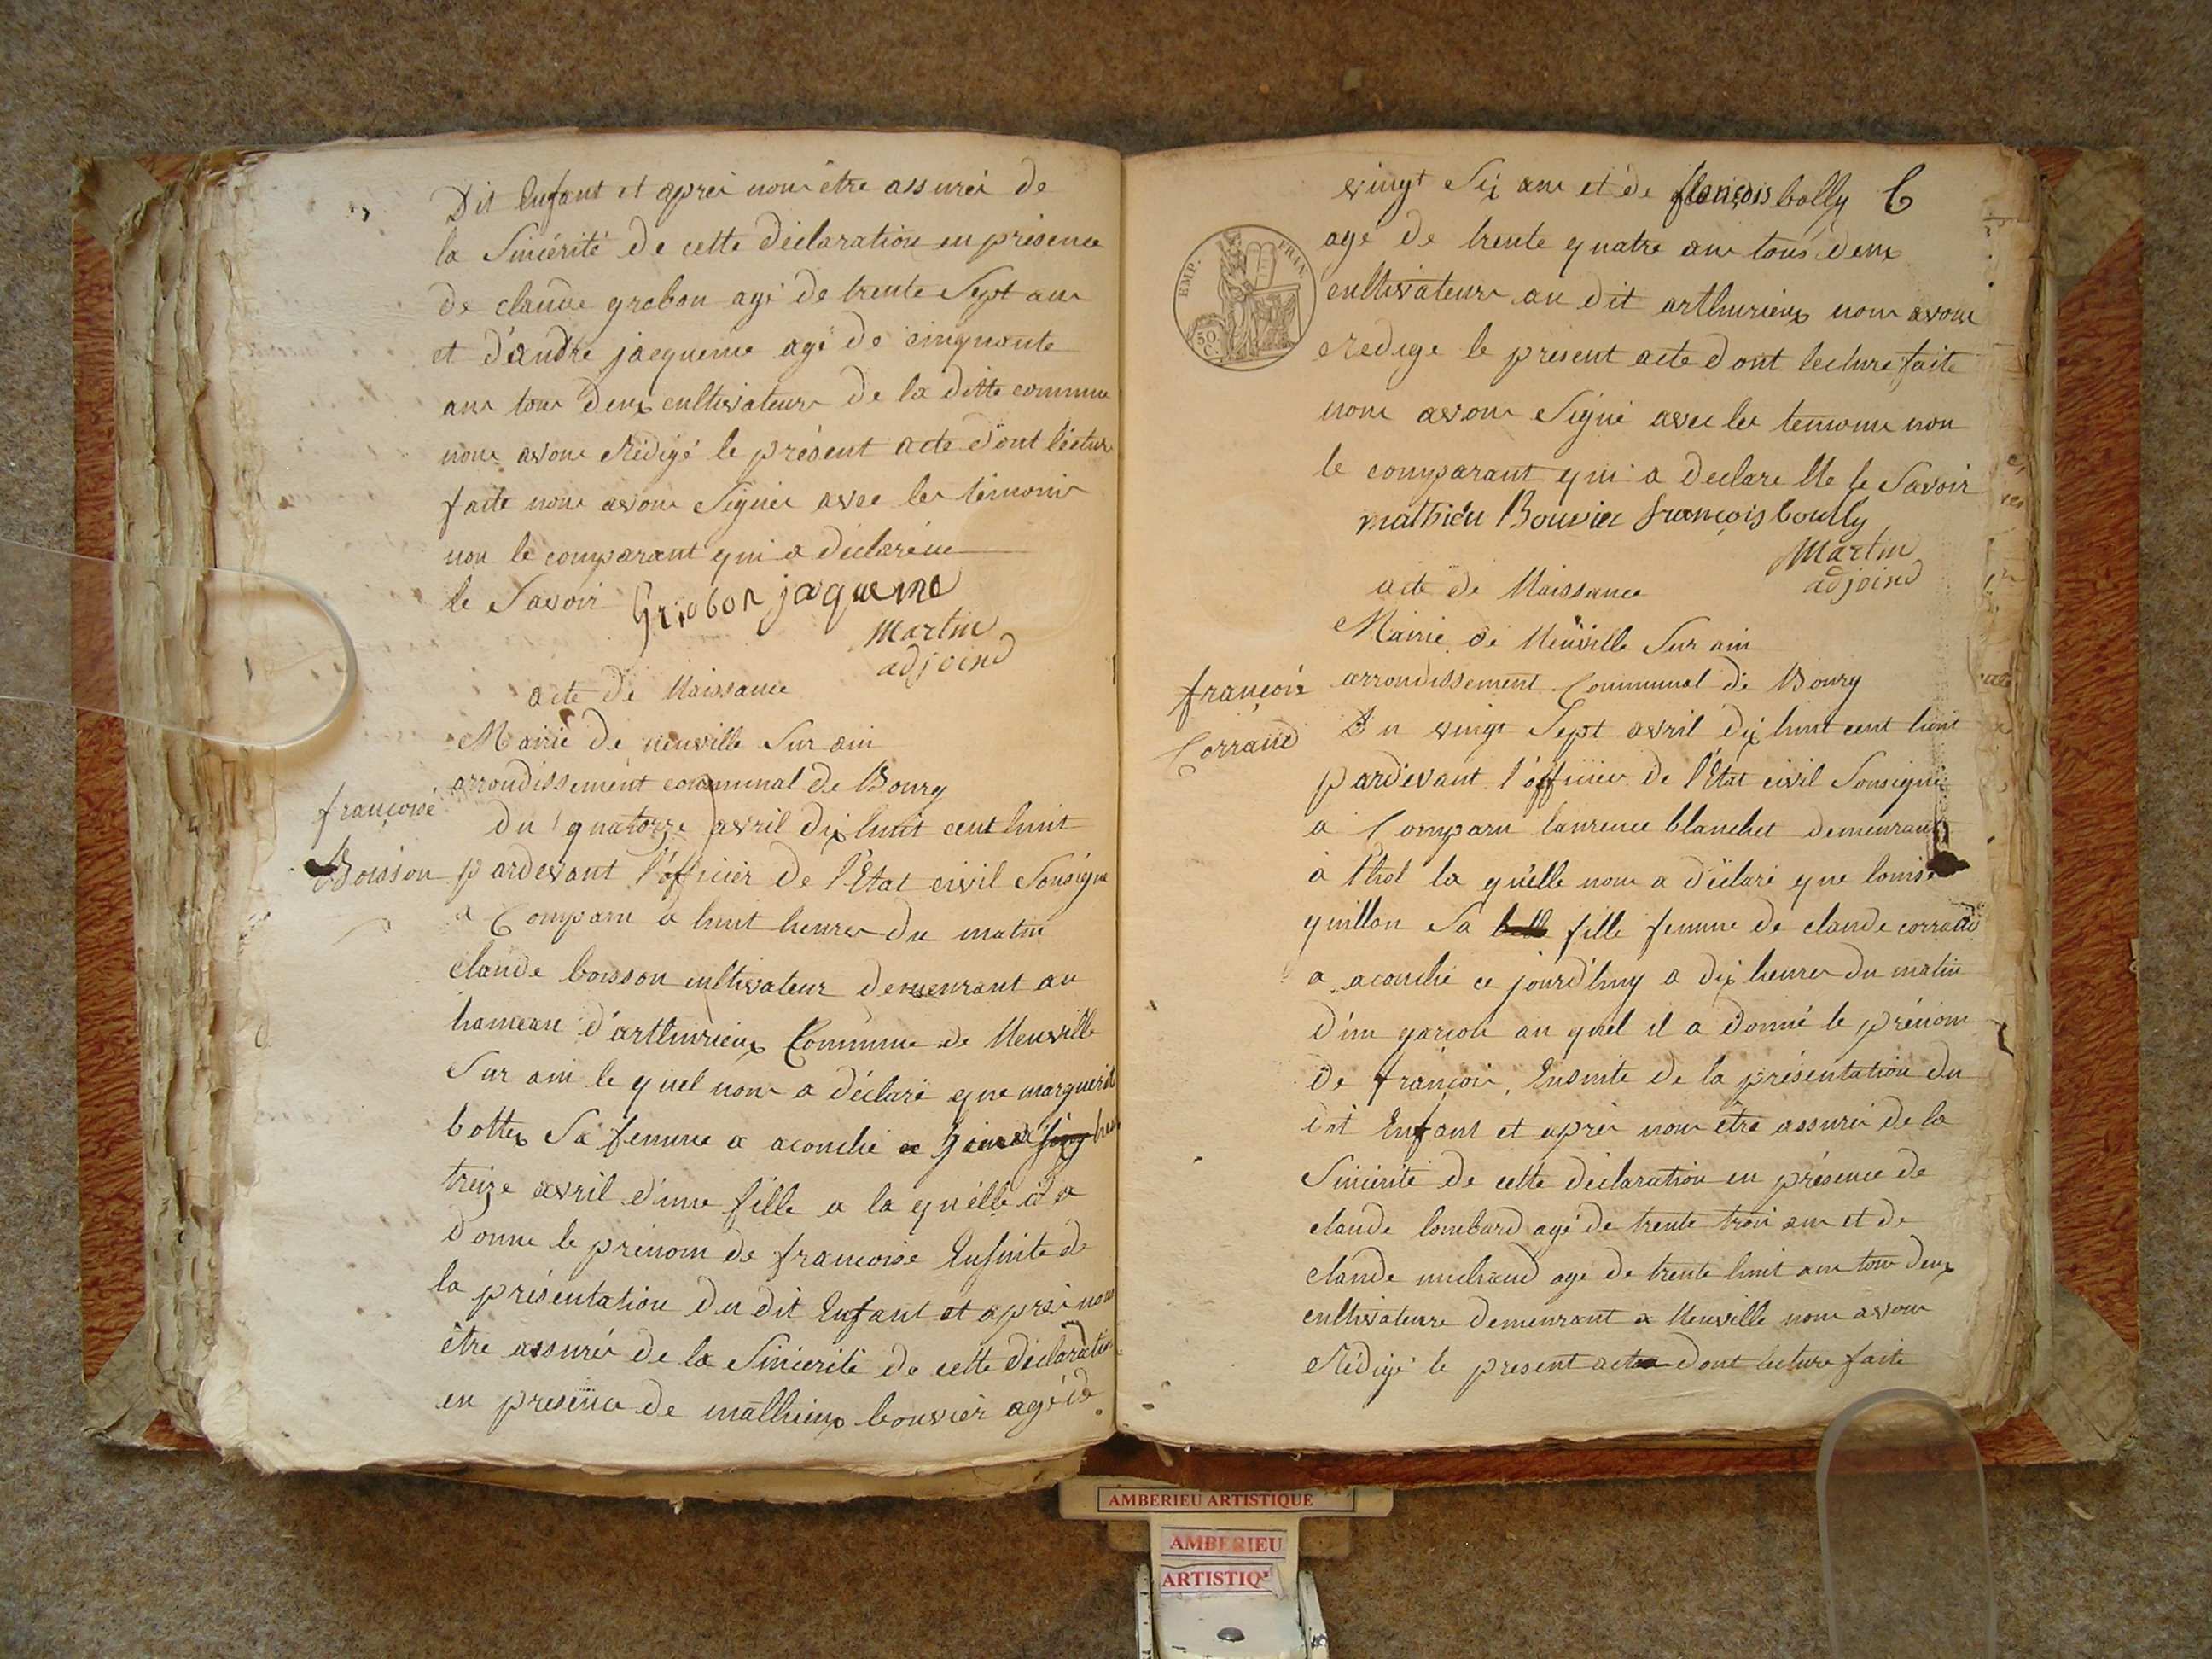 Dit Enfant et aprés nous être assurés de
la Sincérité de cette déclaration en présence
de claude grobon agé de trente Sept ans
et d'andré jacqueme agé de cinquante
ans tous deux cultivateurs de la ditte commune
nous avons Rédigé le présent acte dont léctur
faite nous avons Signés avec les témoins
non le comparant qui a déclaré ne
le Savoir Grobon jaqueme
Martin
adjoind
acte de Naissance
Mairie de neuville Sur ain
arrondissement communal de Bourg
françoise
Boisson
du quatorze avril dix huit cent huit
pardevant l'officier de l'Etat civil Sousigné
a Comparu a huit heures du matin
claude boisson cultivateur demeurant au
hameau d'arthurieux Commune de Neuville
Sur ain le quel nous a déclaré que marguerit
bottex Sa femme a acouché
treize avril d'une fille a la quélle il a
donné le prénom de francoise Ensuite de
la présentation du dit Enfant et aprés nous
être assurés de la Sincerité de cette déclaration
en presence de mathieux bouvier agé de
vingt Six ans et de françois bolly
agé de trente quatre ans tous deux
EMP. FRAN.
50
C.
cultivateurs au dit arthurieux nous avons
Redige le present acte dont lecture faite
nous avons Signé avec les temoins non
le comparant qui a declare Ne le Savoir
mathieu Bouvier françois boully
Martin
adjoind
acte de Naissance
Mairie de Neuville Sur ain
arrondissement Communal de Bourg
françois
Corraud
Du vingt Sept avril dix huit cent huit
pardevant l'officier de l'Etat civil Sousigné
a Comparu laurence blanchet demeurant
à thol la quélle nous a déclaré que louise
quillon Sa belle fille femme de claude corraud
a acouché ce jourd'huy a dix heures du matin
d'un garcon au quel il a donné le prénom
de françois, Ensuite de la présentation du
dit Enfant et aprés nous être assurés de la
Sincérité de cette déclaration en présence de
claude lombard agé de trente trois ans et de
claude michaud age de trente huit ans tous deux
cultivateurs demeurant a Neuville nous avons
Rédigé le present acte dont lecture faite
AMBERIEU ARTISTIQUE
AMBERIEU
ARTISTIQ